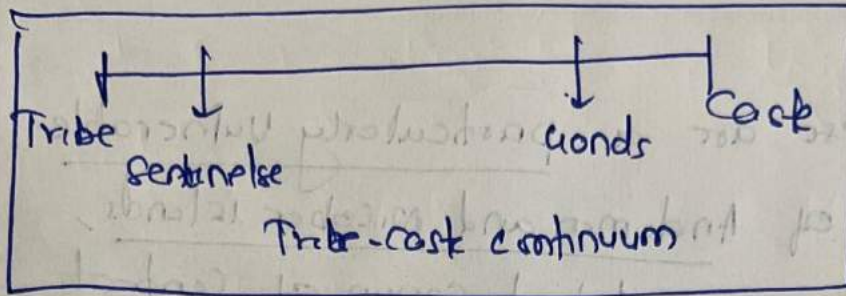 Tribe
Sentinelse
Gonds
Caste
Tribe-caste continuum